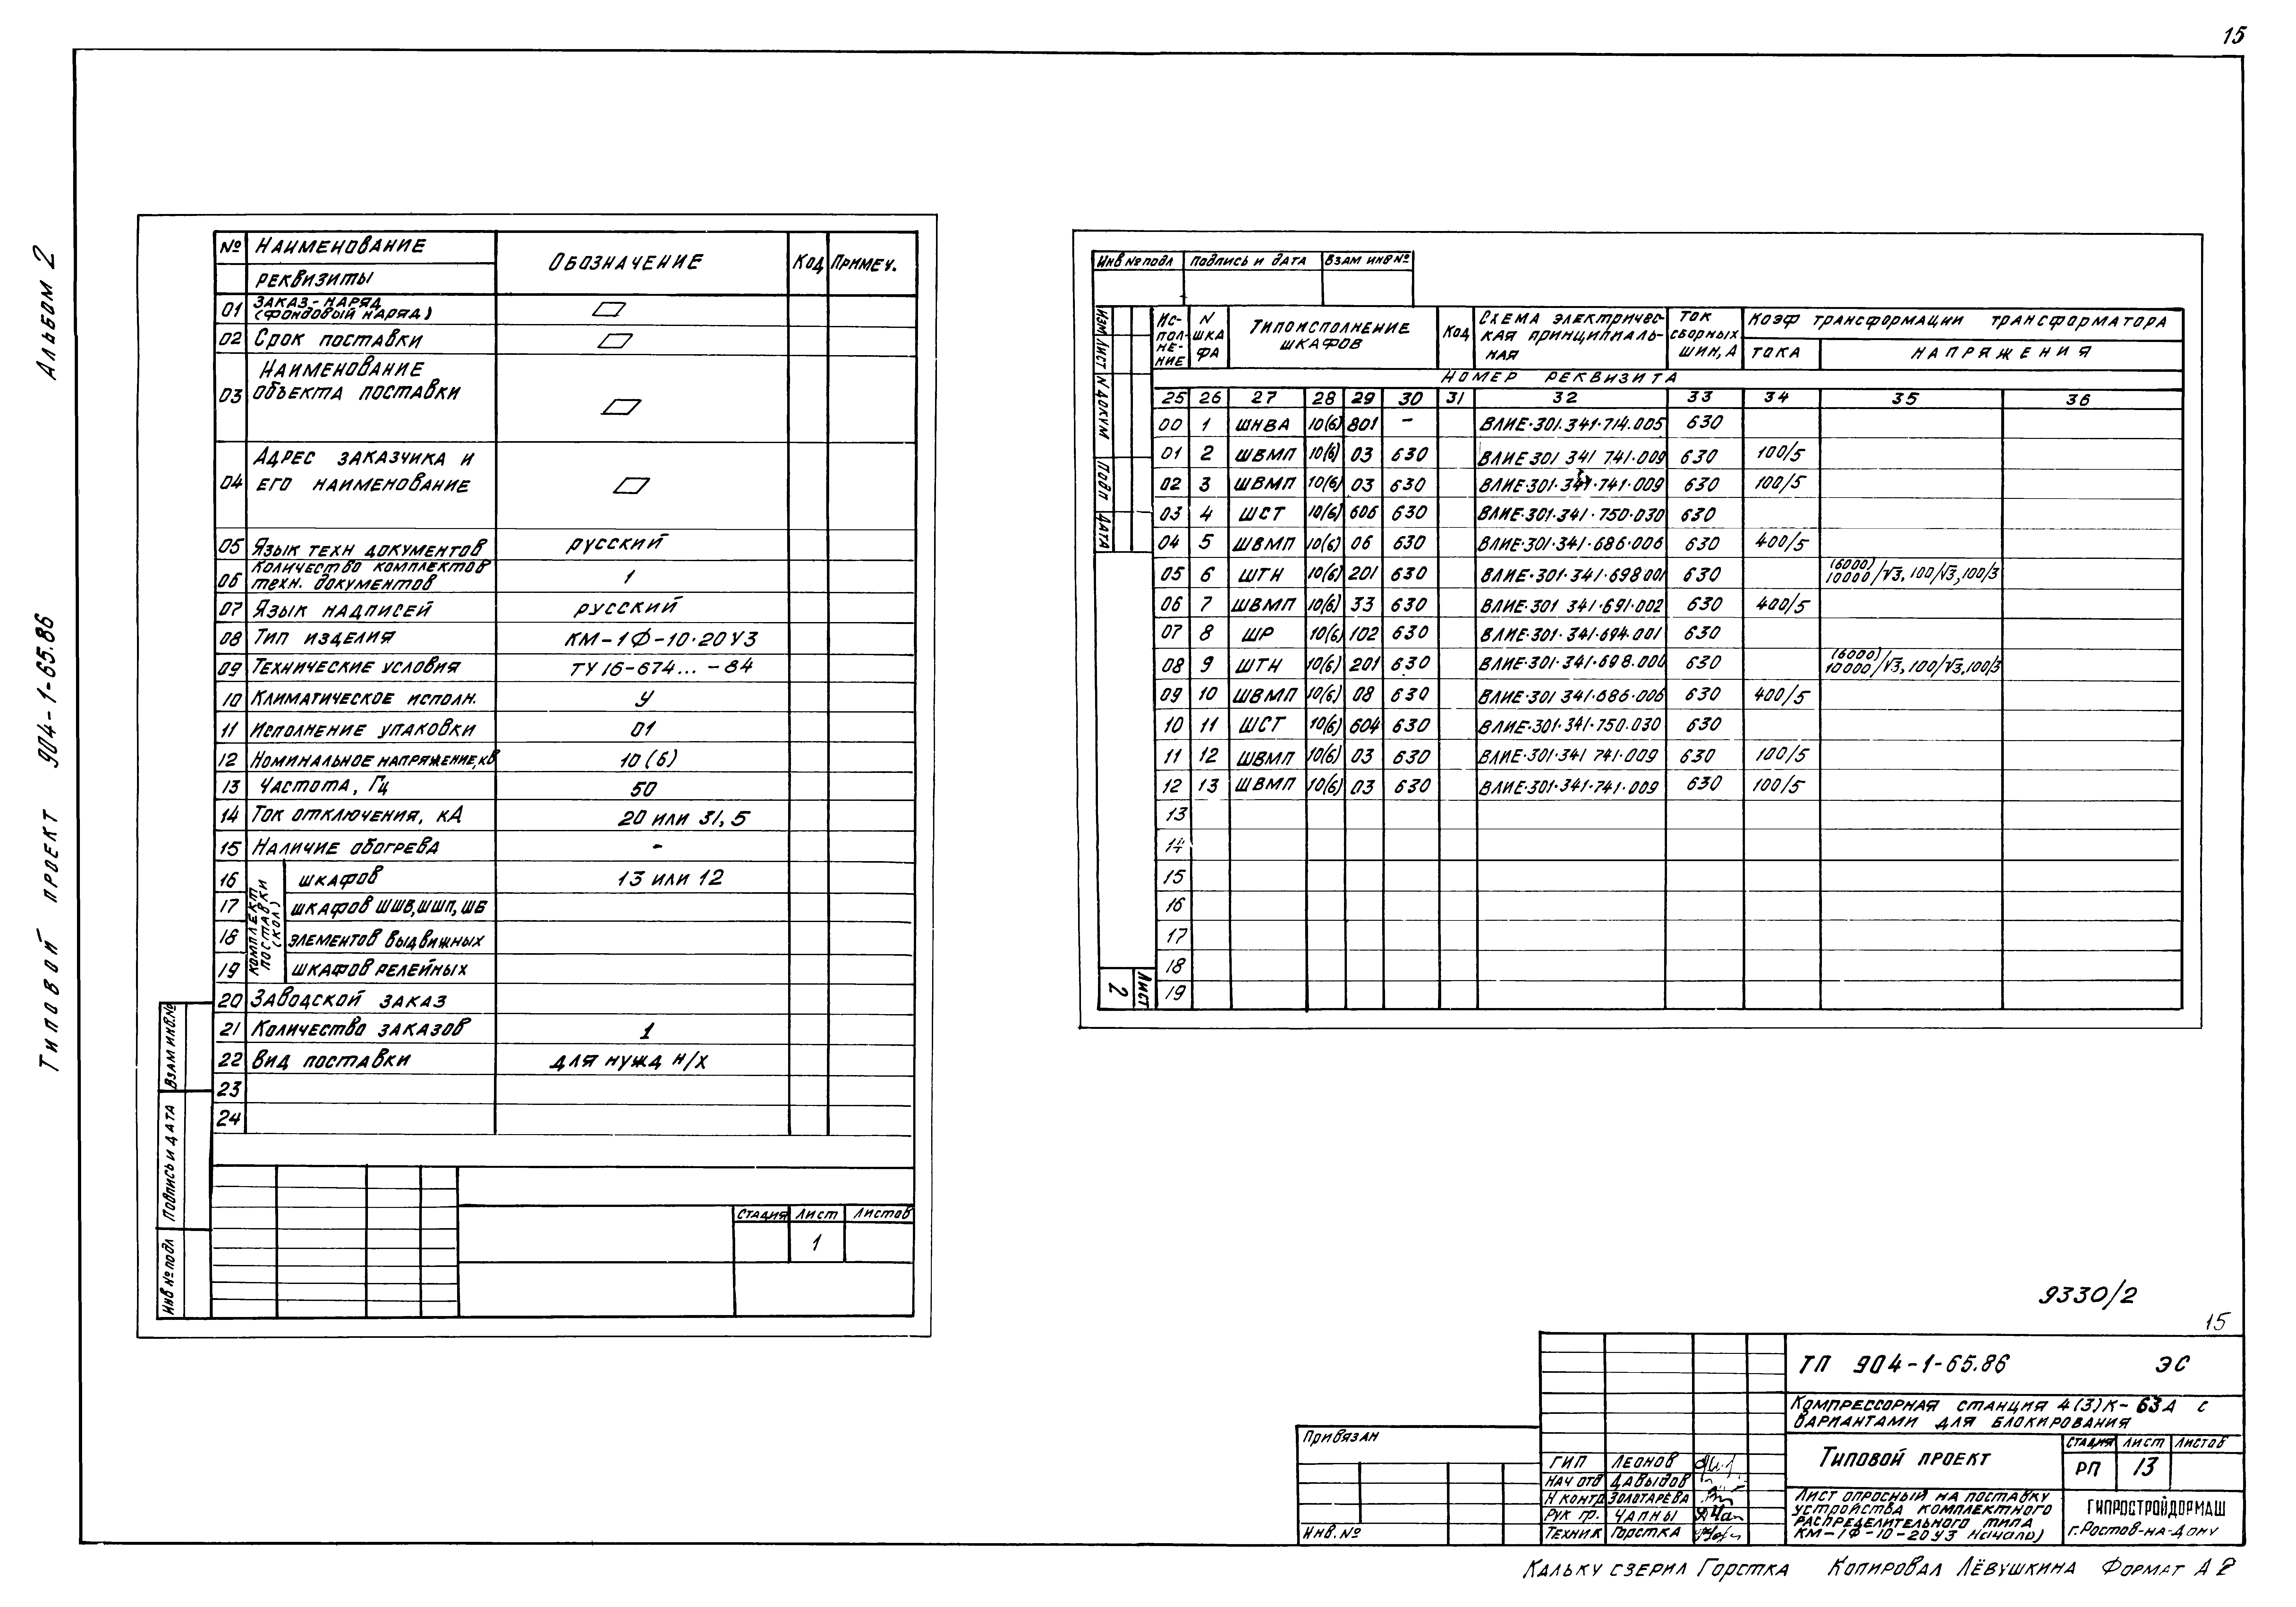 15
Альбом 2
Типовой проект 904-1-65.86
№ Наименование реквизиты Обозначение Код Примеч.
01 Заказ-наряд (фондовый наряд)
02 Срок поставки
03 Наименование объекта поставки
04 Адрес заказчика и его наименование
05 Язык техн документов русский
06 Количество комплектов техн. документов 1
07 Язык надписей русский
08 Тип изделия КМ-1Ф-10·20У3
09 Технические условия ТУ16-674...-84
10 Климатическое исполн. У
11 Исполнение упаковки 01
12 Номинальное напряжение,кВ 10(6)
13 Частота, Гц 50
14 Ток отключения, кА 20 или 31,5
15 Наличие обогрева -
Комплект поставки (кол.)
16 шкафов 13 или 12
17 шкафов ШШВ,ШШП,ШБ
18 элементов выдвижных
19 шкафов релейных
20 Заводской заказ
21 Количество заказов 1
22 Вид поставки для нужд н/х
23
24
Стадия Лист Листов
1
Взам инв.№
Подпись и дата
Инв № подл
Инв № подл Подпись и дата Взам инв №
Изм Лист N докум Подп Дата
Исполнение N шкафа Типоисполнение шкафов Код Схема электрическая принципиальная Ток сборных шин, А Коэф трансформации трансформатора
тока напряжения
Номер реквизита
25 26 27 28 29 30 31 32 33 34 35 36
00 1 ШНВА 10(6) 801 - ВЛИЕ·301.341·714.005 630
01 2 ШВМП 10(6) 03 630 ВЛИЕ 301 341 741·009 630 100/5
02 3 ШВМП 10(6) 03 630 ВЛИЕ·301·341·741·009 630 100/5
03 4 ШСТ 10(6) 606 630 ВЛИЕ·301·341·750·030 630
04 5 ШВМП 10(6) 06 630 ВЛИЕ·301·341·686·006 630 400/5
05 6 ШТН 10(6) 201 630 ВЛИЕ·301·341·698 001 630 (6000) 10000/√3, 100/√3, 100/3
06 7 ШВМП 10(6) 33 630 ВЛИЕ·301 341·691·002 630 400/5
07 8 ШР 10(6) 102 630 ВЛИЕ·301·341·694.001 630
08 9 ШТН 10(6) 201 630 ВЛИЕ·301·341·698.000 630 (6000) 10000/√3, 100/√3, 100/3
09 10 ШВМП 10(6) 08 630 ВЛИЕ·301 341·686·006 630 400/5
10 11 ШСТ 10(6) 604 630 ВЛИЕ·301·341·750.030 630
11 12 ШВМП 10(6) 03 630 ВЛИЕ·301·341 741·009 630 100/5
12 13 ШВМП 10(6) 03 630 ВЛИЕ·301·341·741·009 630 100/5
13
14
15
16
17
18
19
Лист 2
9330/2
15
ТП 904-1-65.86 ЭС
Компрессорная станция 4(3)К-63А с
вариантами для блокирования
Типовой проект
Стадия Лист Листов
РП 13
Лист опросный на поставку
устройства комплектного
распределительного типа
КМ-1Ф-10-20У3 Начало)
ГИПРОСТРОЙДОРМАШ
г.Ростов-на-Дону
ГИП Леонов
Нач отд Давыдов
Н контр Золотарева
Рук гр. Чапны
Техник Горстка
Привязан
Инв.№
Кальку сверил Горстка Копировал Лёвушкина Формат А2